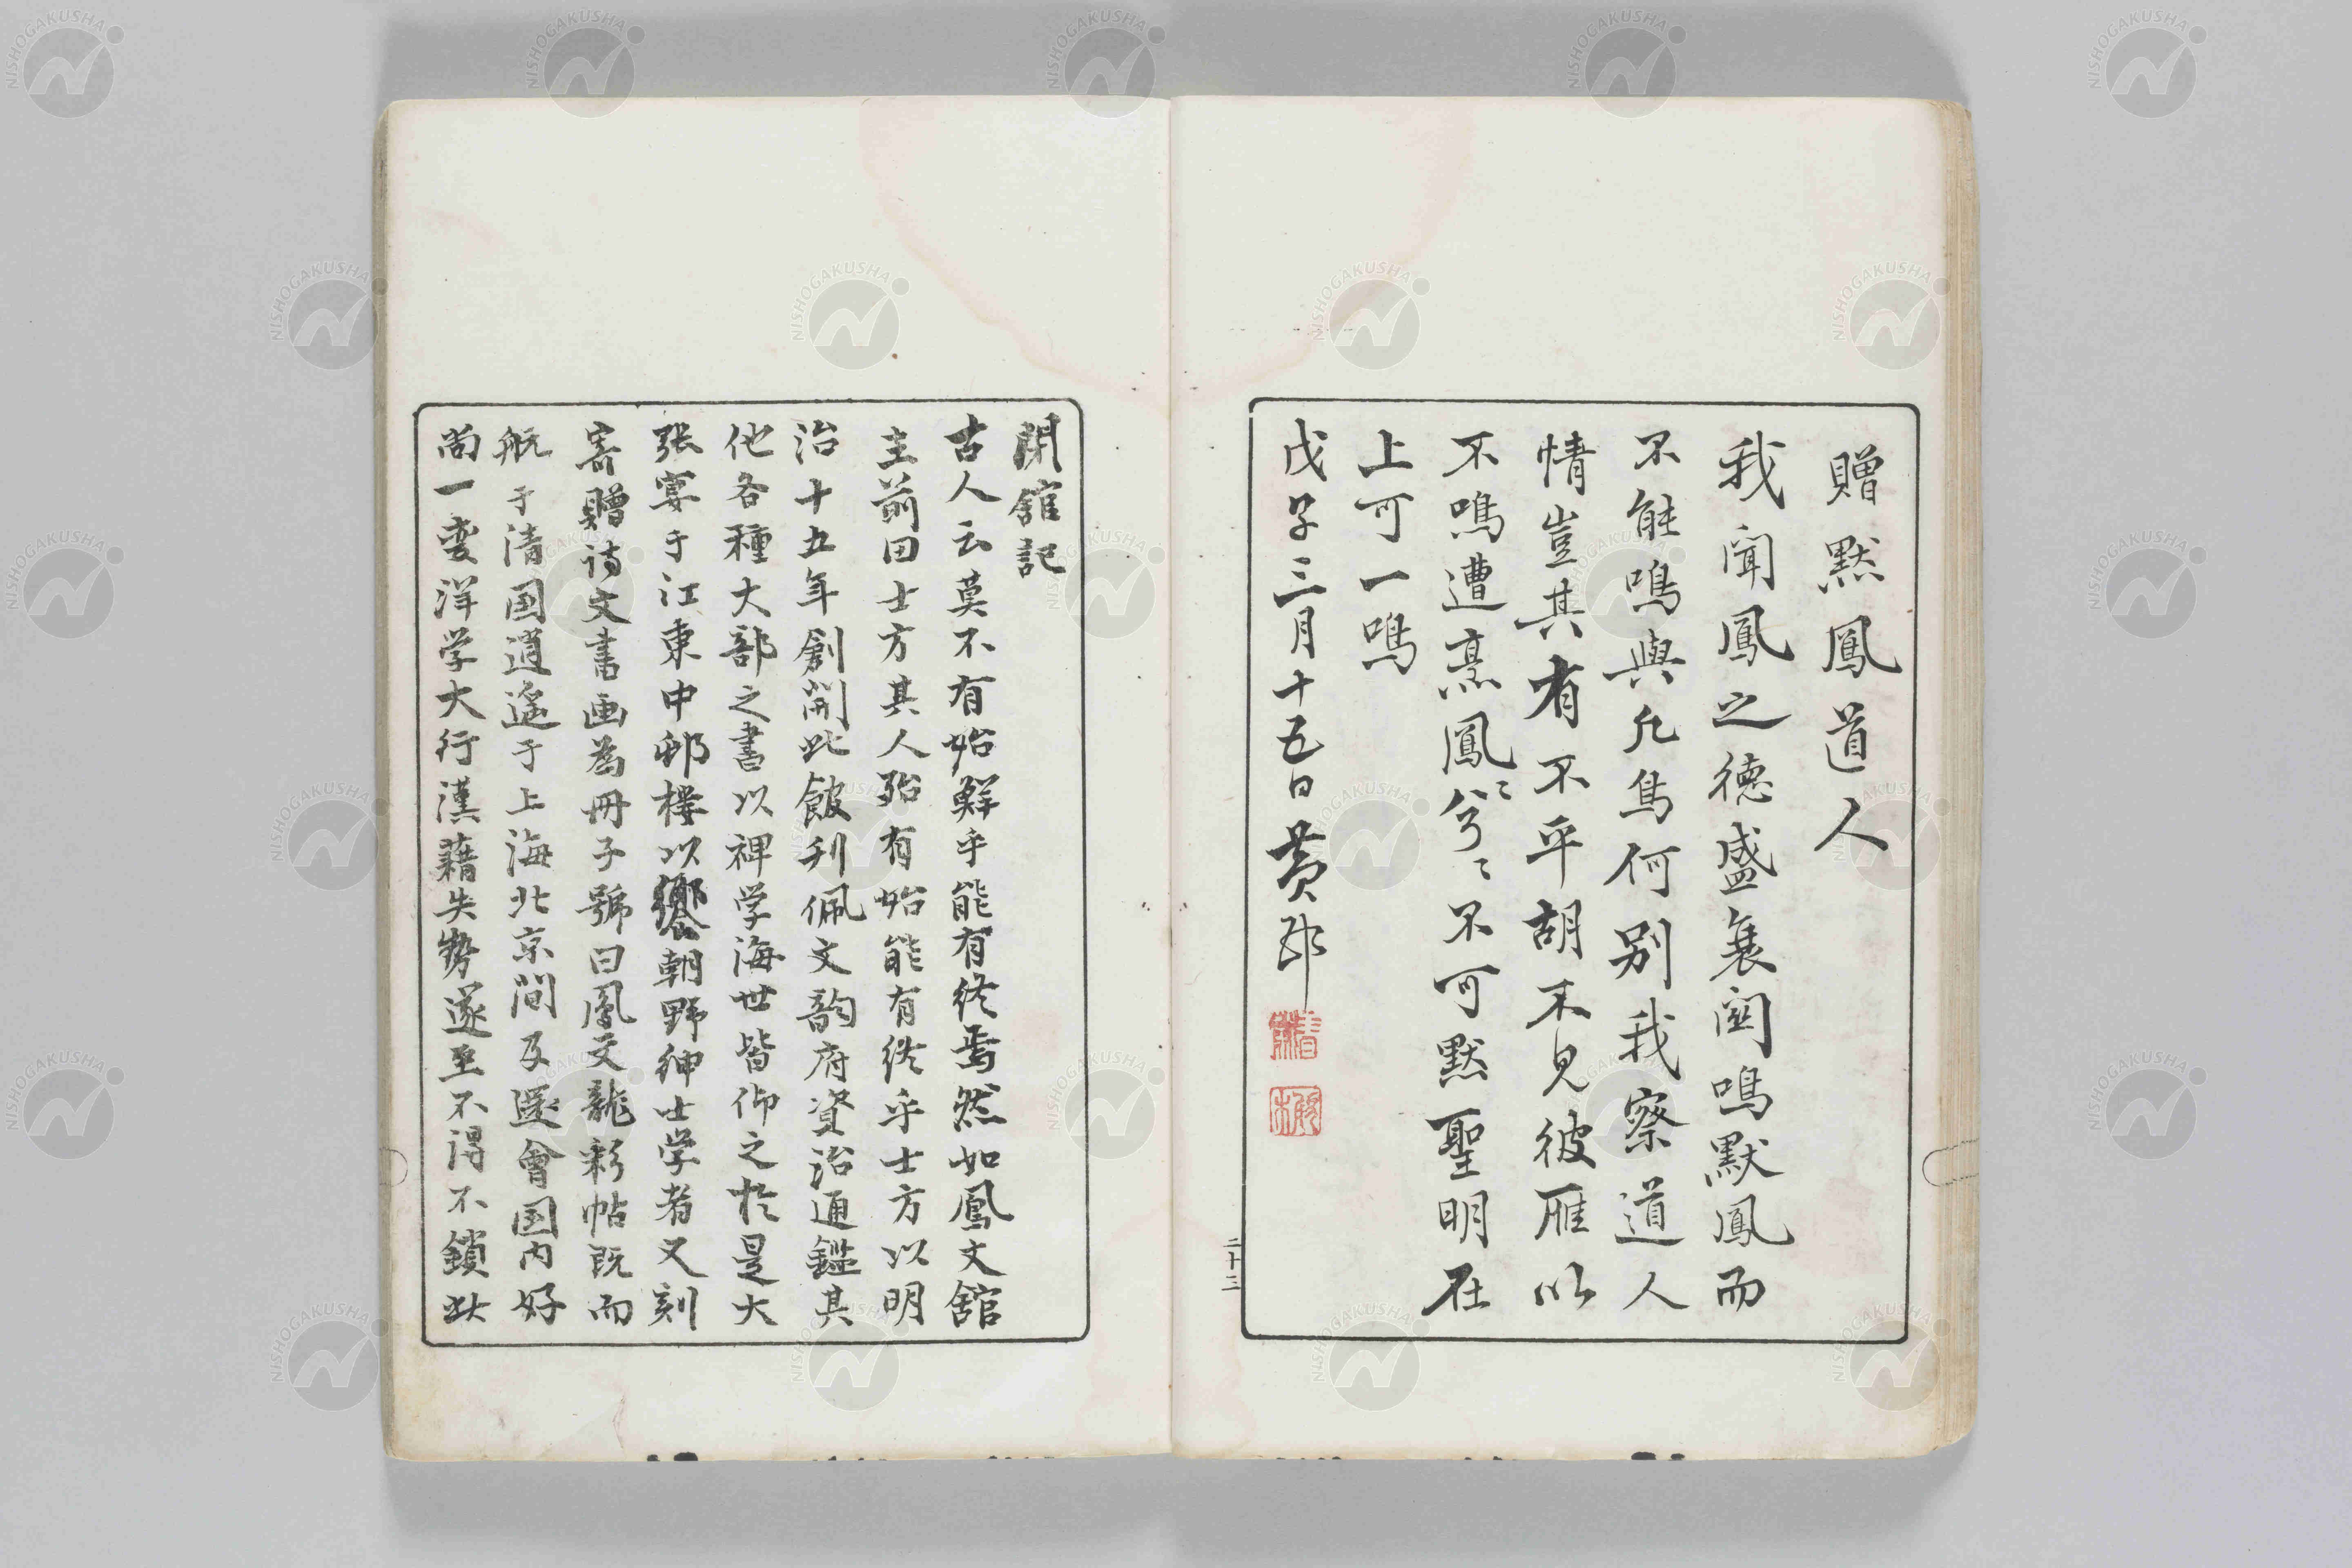 贈黙鳳道人
我聞鳳之徳盛衰関鳴默鳳而
不能鳴與凡鳥何別我察道人
情豈其有不平胡不見彼雁以
不鳴遭烹鳳〻兮〻不可黙聖明在
上可一鳴
戊子三月十五日黄邨
二十三
閉舘記
古人云莫不有始鮮乎能有終焉然如鳳文舘
主前田士方其人殆有始能有終乎士方以明
治十五年創開此館刋佩文韵府資治通鑑其
他各種大部之書以裨学海世皆仰之於是大
張宴于江東中邨楼以饗朝野紳士学者又刻
寄贈詩文書画為冊子號曰鳳文龍彩帖既而
航于清国逍遥于上海北京間及還會国内好
尚一変洋学大行漢藉失勢遂至不得不鎖此
NISHOGAKUSHA